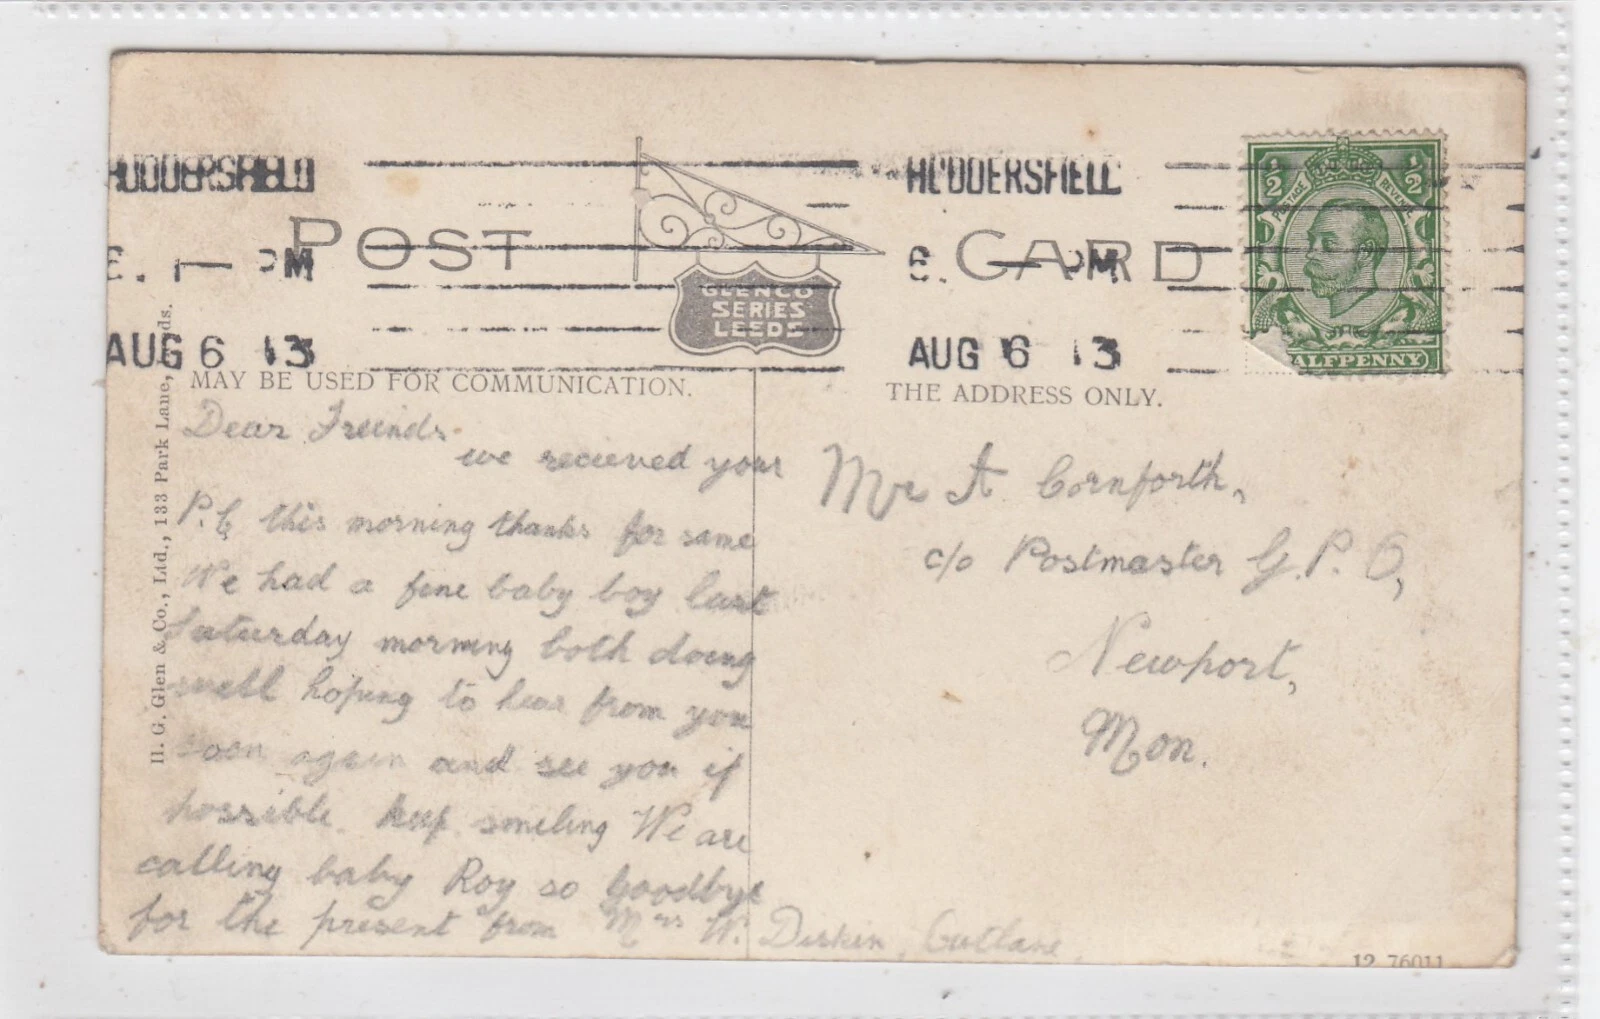 HUDDERSFIELD
HUDDERSFIELL
PM
AUG 6 13
AUG 6 13
POST CARD
GLENCO
SERIES
LEEDS
1/2 1/2
POSTAGE REVENUE
ALFPENNY
MAY BE USED FOR COMMUNICATION.
THE ADDRESS ONLY.
H. G. Glen & Co., Ltd., 133 Park Lane, ds.
Dear Freinds
we recieved your
P.C this morning thanks for same
We had a fine baby boy last
Saturday morning both doing
well hoping to hear from you
soon again and see you if
possible. keep smiling We are
calling baby Roy so Goodbye
for the present from Mrs W. Diskin, Outlane
Mr A Cornforth,
c/o Postmaster G.P.O,
Newport,
Mon.
12 76011